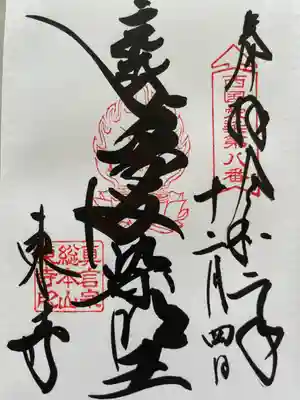 奉拝 令和二年
十二月四日
西国愛染第八番
愛染明王
東寺
真言宗
総本山
東寺印